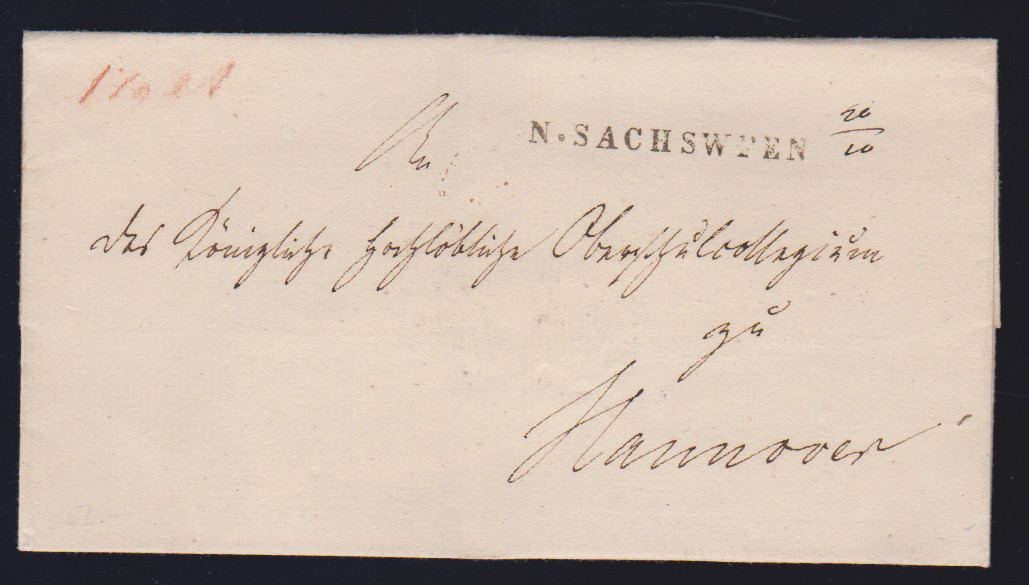 An
N. SACHSWFEN 20/10
das Königliche Hochlöbliche Oberschulcollegium
zu
Hannover